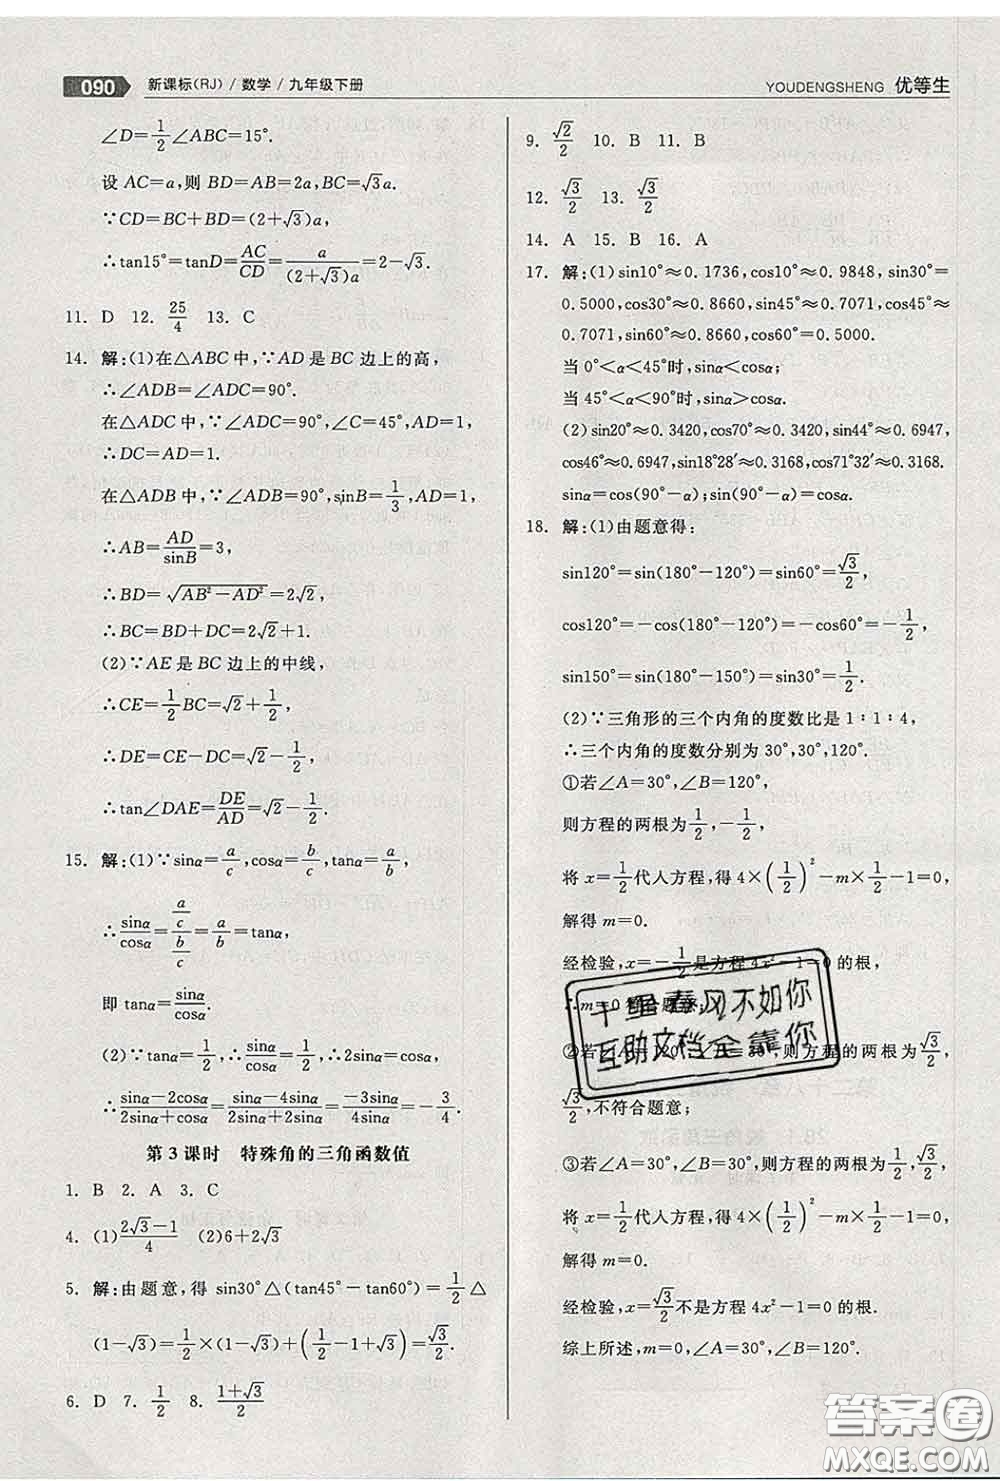 090 新课标(RJ) / 数学 / 九年级下册
YOUDENGSHENG 优等生
∠D=1/2∠ABC=15°.
设 AC=a,则 BD=AB=2a,BC=√3a.
∵CD=BC+BD=(2+√3)a,
∴tan15°=tanD=AC/CD=a/((2+√3)a)=2-√3.
11. D 12. 25/4 13. C
14. 解:(1)在△ABC 中,∵AD 是 BC 边上的高,
∴∠ADB=∠ADC=90°.
在△ADC 中,∵∠ADC=90°,∠C=45°,AD=1,
∴DC=AD=1.
在△ADB 中,∵∠ADB=90°,sinB=1/3,AD=1,
∴AB=AD/sinB=3,
∴BD=√(AB²-AD²)=2√2,
∴BC=BD+DC=2√2+1.
(2)∵AE 是 BC 边上的中线,
∴CE=1/2BC=√2+1/2,
∴DE=CE-DC=√2-1/2,
∴tan∠DAE=DE/AD=√2-1/2.
15. 解:(1)∵sinα=a/c,cosα=b/c,tanα=a/b,
∴sinα/cosα=(a/c)/(b/c)=a/b=tanα,
即 tanα=sinα/cosα.
(2)∵tanα=1/2,∴sinα/cosα=1/2,∴2sinα=cosα,
∴(sinα-2cosα)/(2sinα+cosα)=(sinα-4sinα)/(2sinα+2sinα)=(1-4)/(2+2)=-3/4.
第 3 课时 特殊角的三角函数值
1. B 2. A 3. C
4. (1)(2√3-1)/4 (2)6+2√3
5. 解:由题意,得 sin30°△(tan45°-tan60°)=1/2△
(1-√3)=1/2×(1-√3)+(1/2-1+√3)=√3/2.
6. D 7. 1/2 8. (1+√3)/2
9. √2/2 10. B 11. B
12. √3/2 13. √3/2
14. A 15. B 16. A
17. 解:(1)sin10°≈0.1736,cos10°≈0.9848,sin30°=
0.5000,cos30°≈0.8660,sin45°≈0.7071,cos45°≈
0.7071,sin60°≈0.8660,cos60°=0.5000.
当 0°<α<45°时,sinα<cosα;
当 45°<α<90°时,sinα>cosα.
(2)sin20°≈0.3420,cos70°≈0.3420,sin44°≈0.6947,
cos46°≈0.6947,sin18°28′≈0.3168,cos71°32′≈0.3168.
sinα=cos(90°-α);sin(90°-α)=cosα.
18. 解:(1)由题意得:
sin120°=sin(180°-120°)=sin60°=√3/2,
cos120°=-cos(180°-120°)=-cos60°=-1/2,
sin150°=sin(180°-150°)=sin30°=1/2.
(2)∵三角形的三个内角的度数比是 1∶1∶4,
∴三个内角的度数分别为 30°,30°,120°.
①若∠A=30°,∠B=120°,
则方程的两根为1/2,-1/2,
将 x=1/2代入方程,得 4×(1/2)²-m×1/2-1=0,
解得 m=0.
经检验,x=-1/2是方程 4x²-1=0 的根,
∴m=0 符合题意;
②若∠A=120°,∠B=30°,则方程的两根为√3/2,
√3/2,不符合题意;
③若∠A=30°,∠B=30°,则方程的两根为1/2,√3/2,
将 x=1/2代入方程,得 4×(1/2)²-m×1/2-1=0,
解得 m=0.
经检验,x=√3/2不是方程 4x²-1=0 的根.
综上所述,m=0,∠A=30°,∠B=120°.
千里春风不如你
互助文档全靠你
答案圈
MXQE.COM